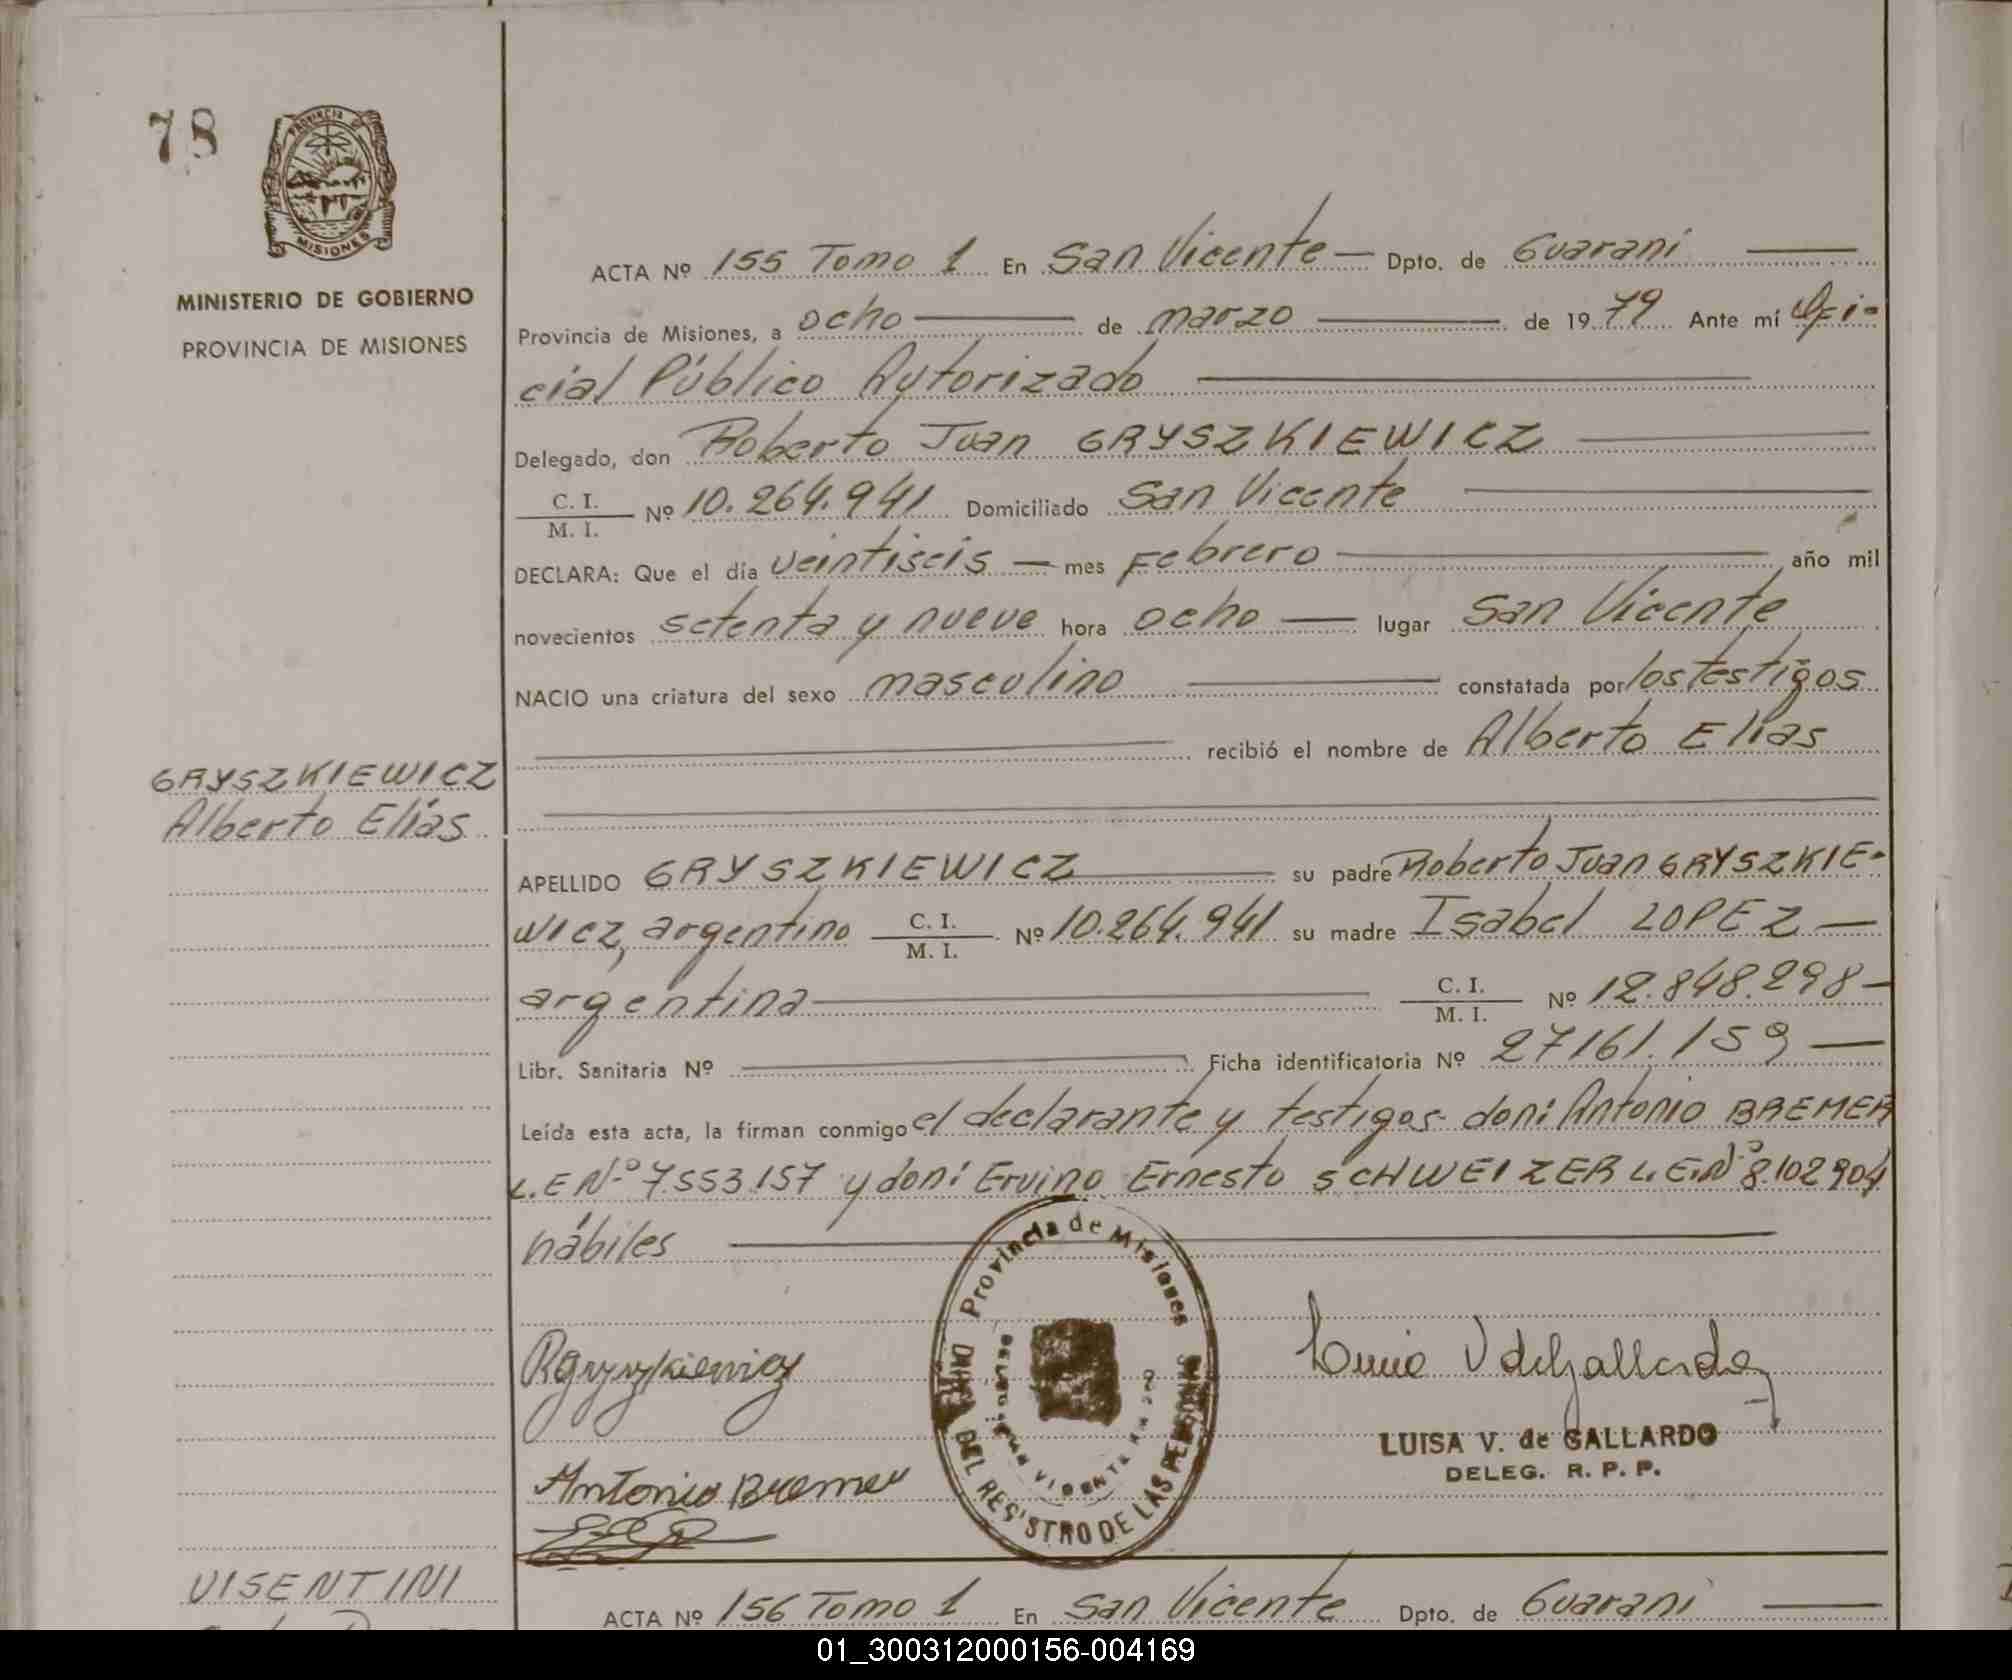 78
PROVINCIA DE
MISIONES
MINISTERIO DE GOBIERNO
PROVINCIA DE MISIONES
ACTA Nº 155 Tomo 1 En San Vicente — Dpto. de Guaraní
Provincia de Misiones, a ocho de marzo de 1979 Ante mí Ofi-
cial Público Autorizado
Delegado, don Roberto Juan GRYSZKIEWICZ
C. I.
M. I. Nº 10.264.941 Domiciliado San Vicente
DECLARA: Que el día veintiseis — mes Febrero año mil
novecientos setenta y nueve hora ocho — lugar San Vicente
NACIO una criatura del sexo masculino constatada por los testigos
recibió el nombre de Alberto Elias
GRYSZKIEWICZ
Alberto Elías
APELLIDO GRYSZKIEWICZ su padre Roberto Juan GRYSZKIE-
WICZ, argentino C. I. M. I. Nº 10.264.941 su madre Isabel LOPEZ —
argentina C. I. M. I. Nº 12.848.298 —
Libr. Sanitaria Nº Ficha identificatoria Nº 27161.159 —
Leída esta acta, la firman conmigo el declarante y testigos don: Antonio BREMER
L.E Nº 7.553.157 y don: Ervino Ernesto SCHWEIZER L.E.Nº 8.102904
hábiles
Provincia de Misiones
DEL REGISTRO DE LAS PERSONAS
Antonio Bremer
LUISA V. de GALLARDO
DELEG. R. P. P.
VISENTINI
ACTA Nº 156 Tomo 1 En San Vicente Dpto. de Guaraní
01_300312000156-004169